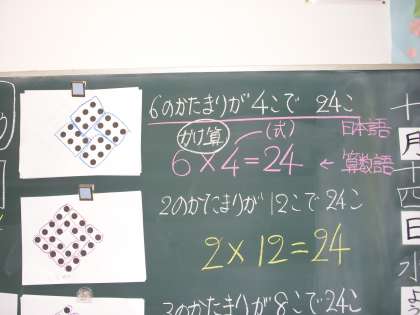 6のかたまりが4こで 24こ
かけ算 (式) 日本語
6×4=24 ← 算数語
2のかたまりが12こで24こ
2×12=24
3のかたまりが8こで24こ
十
月
十
四
日
水